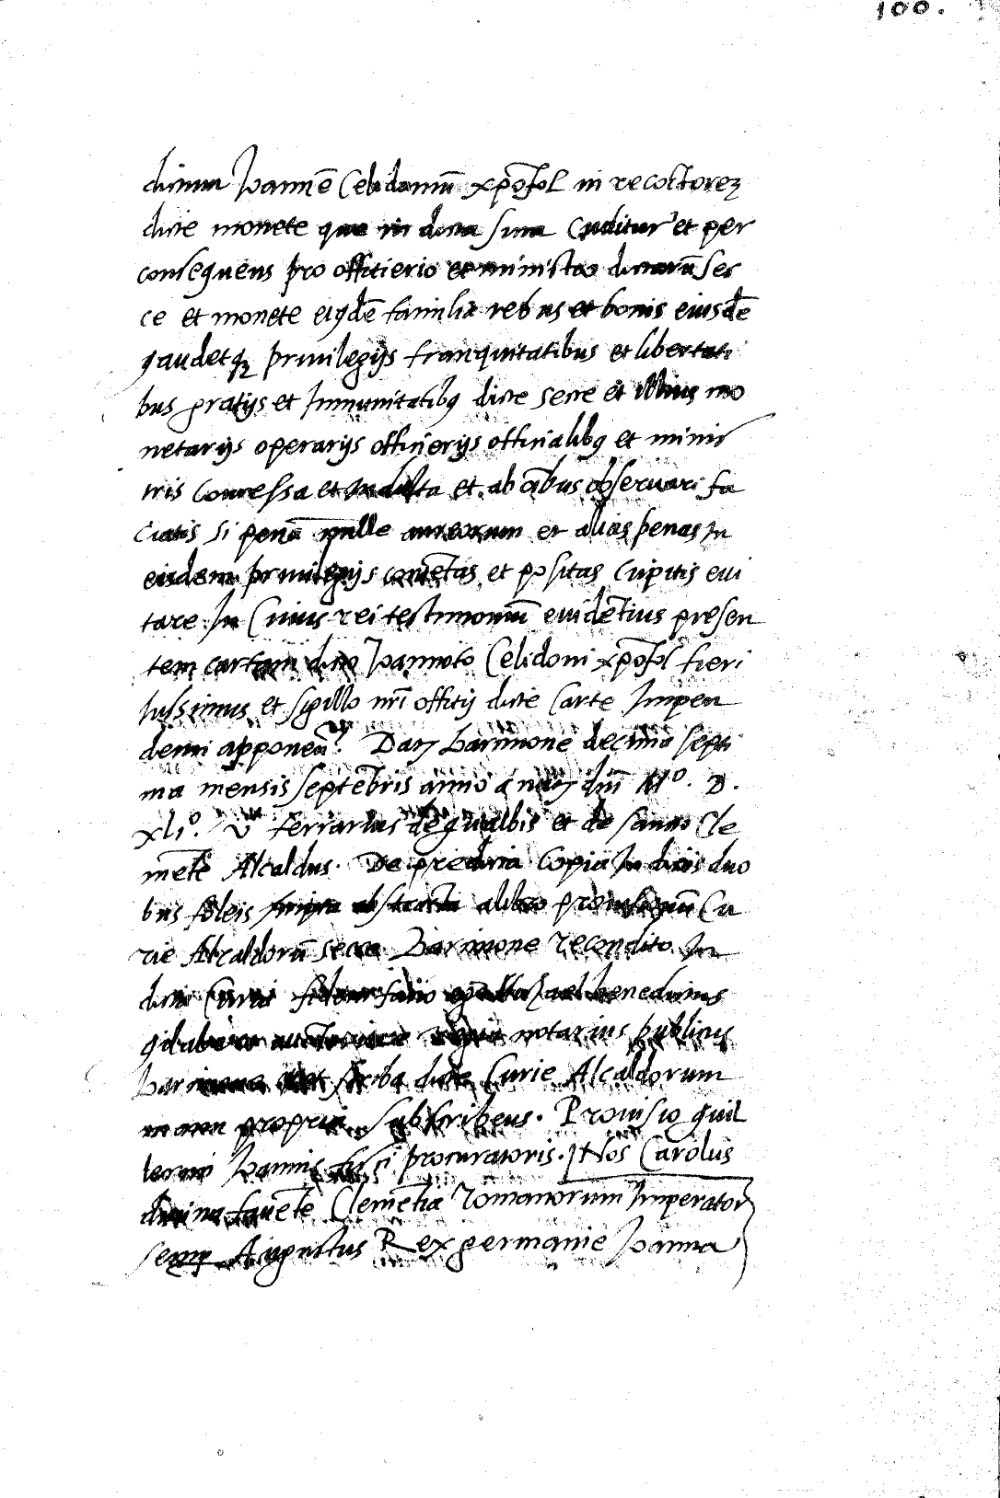 100.
dictum Joannē Celidonium xp̄ofol in recollectorez
dicte monete que in dicta sicca cuditur et per
consequens pro offitierio et ministro dictarū sec
ce et monete eiqdē familia rebus et bonis eiusdē
gaudetq privilegijs franquitatibus et libertati
bus gratijs et Immunitatibq dicte secce et illius mo
netarijs operarijs offitierijs offitialibq et minis
tris concessa et indulta et ab oībus observari fa
ciatis si penā mille aureorum et alias penas in
eisdem privilegijs contētas et positas cupitis evi
tare. In Cuius rei testimoniū evidētius presen
tem cartam dicto Joannoto Celidoni xp̄ofol fieri
Iussimus et sigillo nrī offitij dicte Carte Impen
denti apponēd. Datz barcinone decima septi
ma mensis septēbris anno a natz dn̄i Mº. D.
xliº. v ferrarius de gualbis et de sancto Cle
mēte Alcaldus. De predicta Copia in dictis duo
bus foleis supra abstracta a libro privilegiorū Cu
rie Alcaldorū secce Barcinone recondito In
dicta Curia fidem facio benedictus
notarius publicus
barcinone scriba dicte Curie Alcaldorum
manu propria subscribens. Provisio guil
lermi Joannis fisci procuratoris. Nos Carolus
divina favēte Clemētia Romanorum Imperator
semp Augustus Rex germanie Joanna